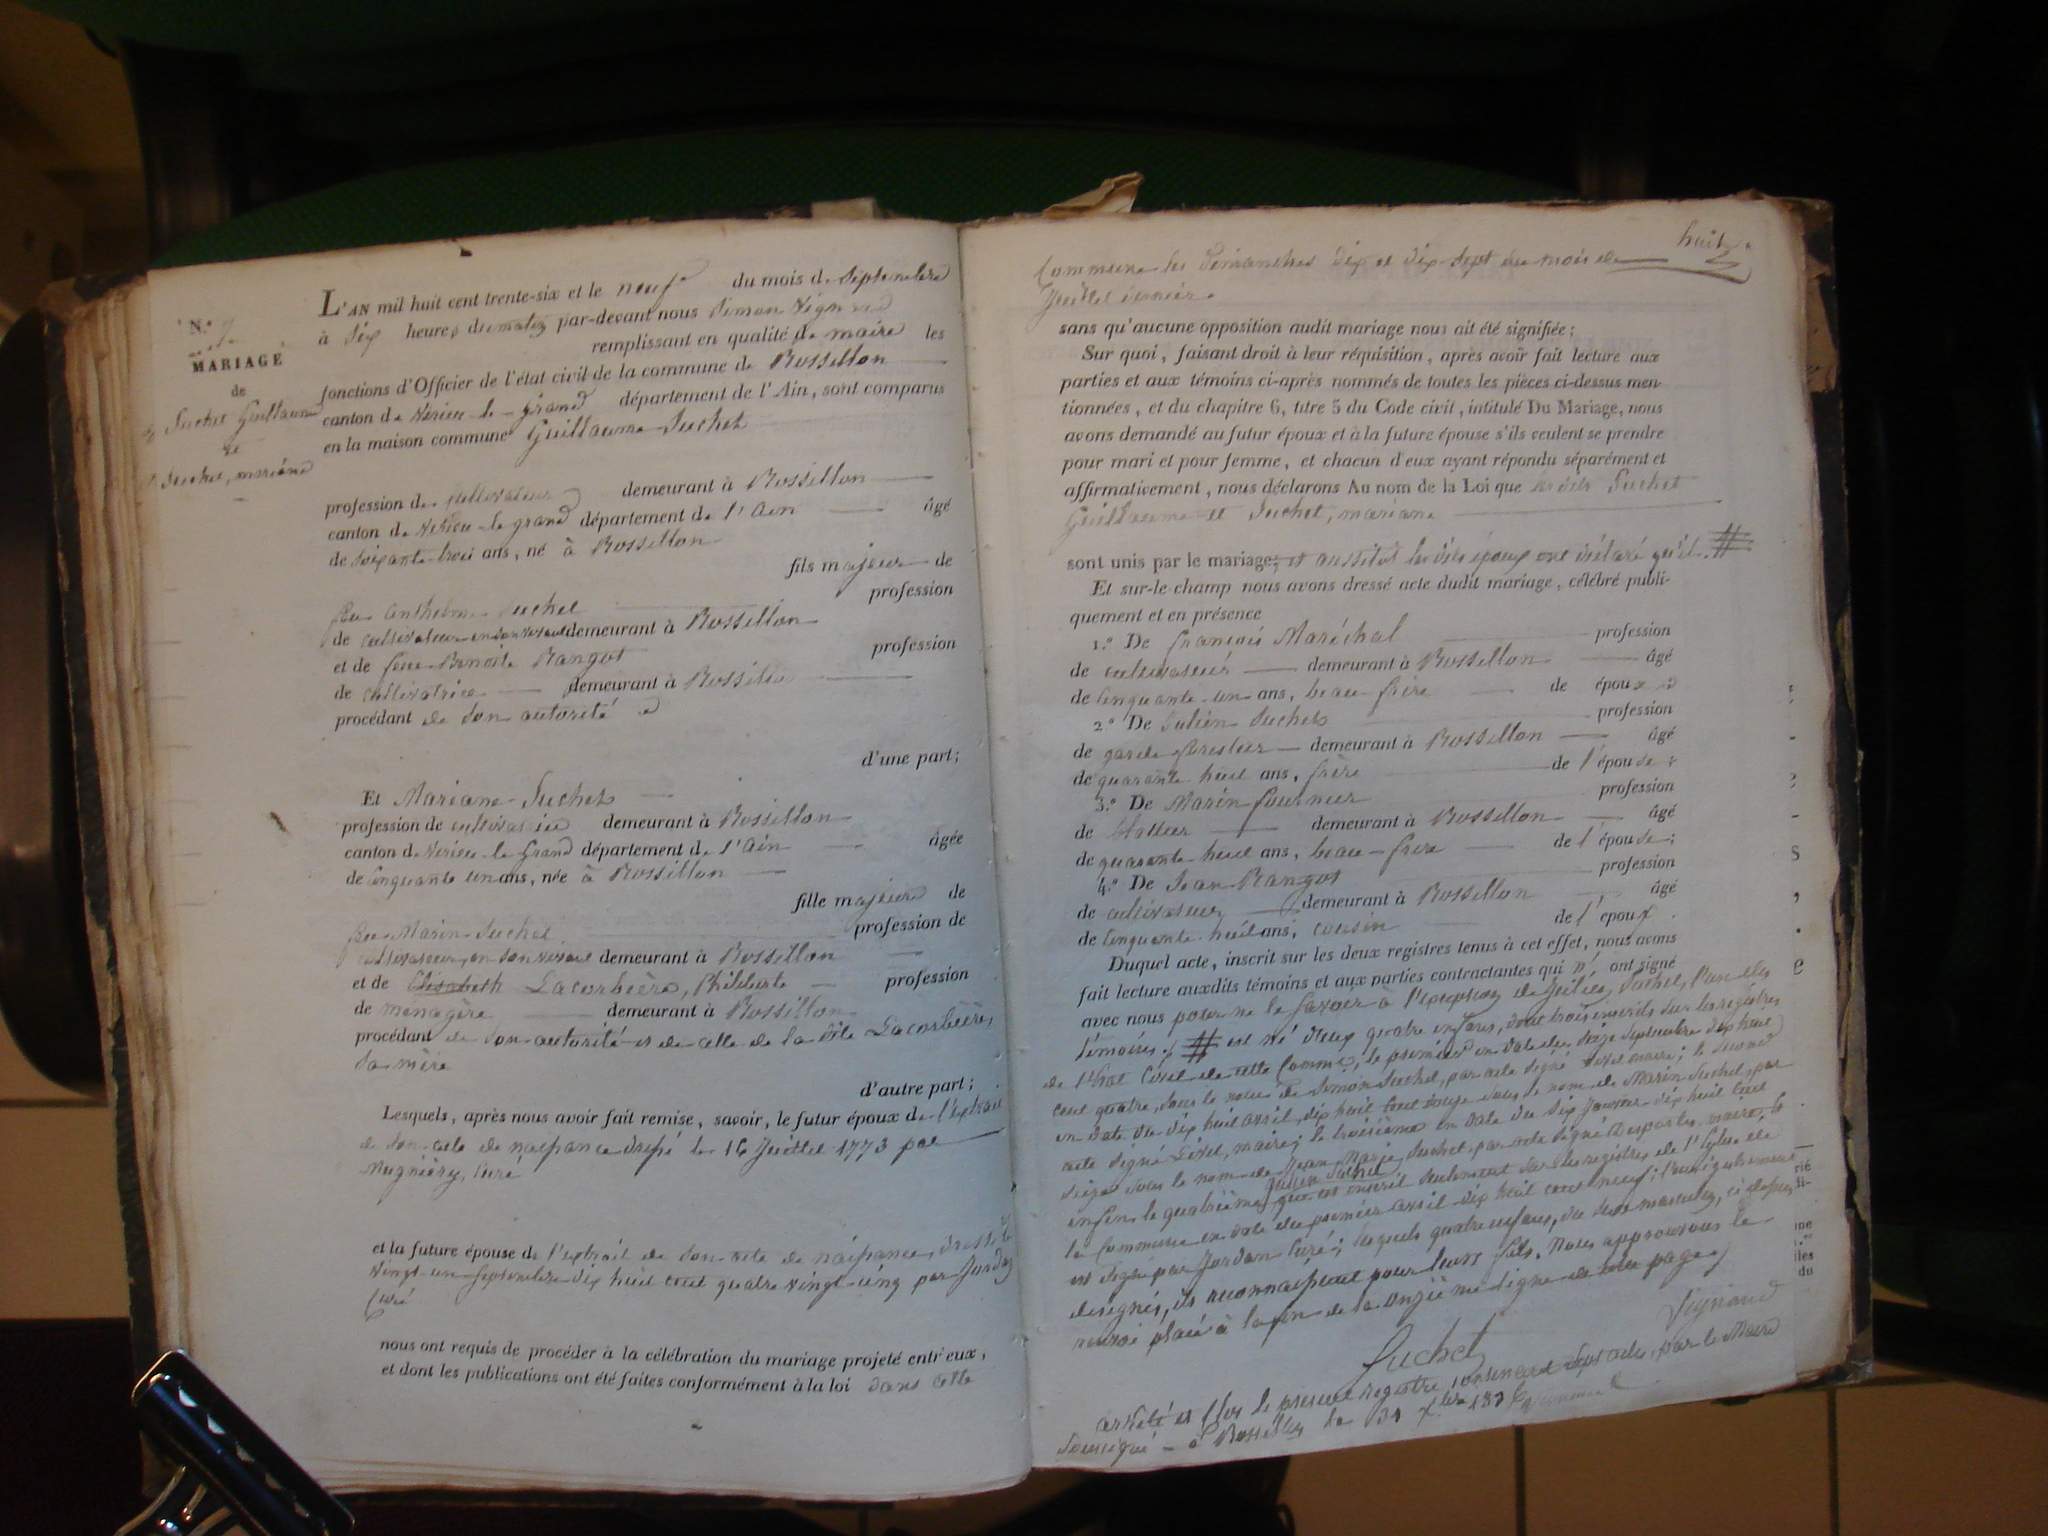 N.° 7
MARIAGE
de
Suchet Guillaume
et
Suchet, mariane
L'AN mil huit cent trente-six et le neuf du mois de Septembre
à dix heures du matin par-devant nous Simon Vignaud
remplissant en qualité de maire les
fonctions d'Officier de l'état civil de la commune de Rossillon
canton de Virieu-le-Grand département de l'Ain, sont comparus
en la maison commune Guillaume Suchet
profession de cultivateur demeurant à Rossillon
canton de Virieu-le-grand département de l'Ain âgé
de soixante-trois ans, né à Rossillon
fils majeur de
feu Anthelme Suchet profession
de cultivateur en son vivant demeurant à Rossillon
et de feue Benoite Rangot profession
de cultivatrice demeurant à Rossillon
procédant de son autorité
d'une part;
Et Mariane Suchet
profession de cultivatrice demeurant à Rossillon
canton de Virieu-le-Grand département de l'Ain âgée
de Cinquante un ans, née à Rossillon
fille majeure de
feu Marin Suchet profession de
cultivateur, en son vivant demeurant à Rossillon
et de Elisabeth Lacorbière, Philiberte profession
de ménagère demeurant à Rossillon
procédant de son autorité et de celle de la dite Lacorbière,
sa mère
d'autre part;
Lesquels, après nous avoir fait remise, savoir, le futur époux de l'extrait
de son acte de naissance dressé le 16 Juillet 1773 par
Mugniéry, Curé
et la future épouse de l'extrait de son acte de naissance, dressé le
vingt-un Septembre dix huit cent quatre vingt-cinq par Jordan
Curé
nous ont requis de procéder à la célébration du mariage projeté entr'eux,
et dont les publications ont été faites conformément à la loi dans cette
huit
Commune les Dimanches dix et dix-sept du mois de
Juillet dernier.
sans qu'aucune opposition audit mariage nous ait été signifiée;
Sur quoi, faisant droit à leur réquisition, après avoir fait lecture aux
parties et aux témoins ci-après nommés de toutes les pièces ci-dessus men-
tionnées, et du chapitre 6, titre 5 du Code civil, intitulé Du Mariage, nous
avons demandé au futur époux et à la future épouse s'ils veulent se prendre
pour mari et pour femme, et chacun d'eux ayant répondu séparément et
affirmativement, nous déclarons Au nom de la Loi que les dits Suchet
Guillaume et Suchet, mariane
sont unis par le mariage; et aussitôt les dits époux ont déclaré qu'il #
Et sur-le-champ nous avons dressé acte dudit mariage, célébré publi-
quement et en présence
1.° De François Maréchal profession
de cultivateur demeurant à Rossillon âgé
de Cinquante-un ans, beau-frère de époux
2.° De Julien Suchet profession
de garde forestier demeurant à Rossillon âgé
de quarante huit ans, frère de l'épouse;
3.° De Marin fournier profession
de demeurant à Rossillon âgé
de quarante huit ans, beau-frère de l'épouse;
4.° De Jean Rangot profession
de cultivateur demeurant à Rossillon âgé
de Cinquante-huit ans, cousin de l'époux.
Duquel acte, inscrit sur les deux registres tenus à cet effet, nous avons
fait lecture auxdits témoins et aux parties contractantes qui n' ont signé
avec nous pour ne le savoir à l'exception de Julien Suchet, l'un des
témoins. # est né d'eux quatre enfans, dont trois inscrits sur les registres
de l'Etat Civil de cette Comme, le premier en date du treize Septembre dix huit
cent quatre, sous le nom de Simon Suchet, par acte signé maire; le second
en date du dix huit avril, dix huit cent sous le nom de Marin Suchet, par
acte signé maire; le troisième en date du six Janvier dix huit cent
seize sous le nom de Jean Marie Suchet, par acte signé maire; le
Julien Suchet
enfin le quatrième qui est inscrit seulement sur les registres de l'Eglise de
la Commune en date du premier avril dix huit cent neuf; l'enregistrement
est signé par Jordan Curé; lesquels quatre enfans, du sexe masculin, ci dessus
désignés, ils reconnaissent pour leurs fils. Nous approuvons le
renvoi placé à la fin de la onzième ligne de cette page.
Vignaud
Suchet
arrêté et Clos le présent registre contenant sept actes, par le Maire
soussigné - à Rossillon le 31 Xbre 1836